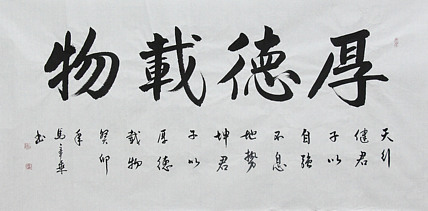 厚德載物
天行
健君
子以
自強
不息
地勢
坤君
子以
厚德
載物
癸卯
年
書